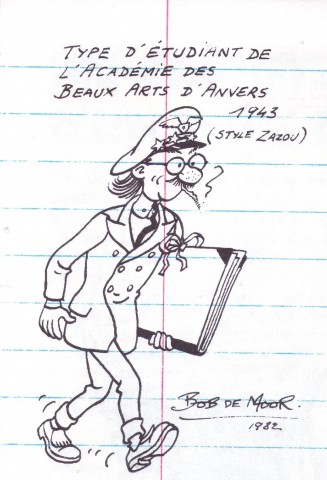 TYPE D'ÉTUDIANT DE
L'ACADÉMIE DES
BEAUX ARTS D'ANVERS
1943
(STYLE ZAZOU)
BOB DE MOOR.
1982